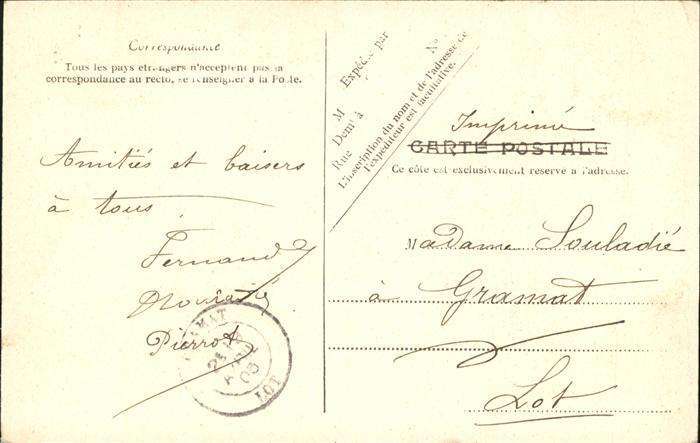 Correspondance
Tous les pays etrangers n'acceptent pas la
correspondance au recto, se renseigner à la Poste.
Amitiés et baisers
à tous
Fernand
Pierrot
GRAMAT
LOT
Expédié par
M
Demt à
Rue
N°
L'inscription du nom et de l'adresse de
l'expéditeur est facultative.
Imprimé
CARTE POSTALE
Ce côté est exclusivement réservé à l'adresse.
Madame Souladié
à Gramat
Lot